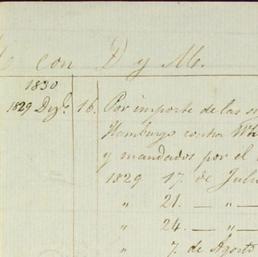 con D y M.
1830
1829 Dizᵉ. 16. Por importe de las
Hamburgo contra Wh
y mandados por el
1829 17. de Juli
" 21. — " —
" 24. — " —
" 7. de Agosto